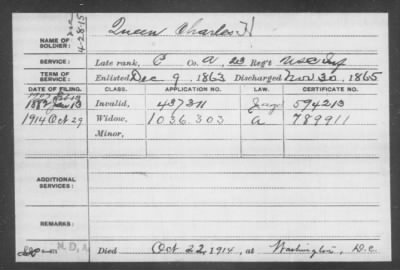 Dec
4-28-15
NAME OF SOLDIER: Queen Charles H
SERVICE: Late rank, P Co. A, 23 Reg't U S C Inf
TERM OF SERVICE: Enlisted Dec 9, 1863 Discharged Nov 30, 1865
DATE OF FILING. CLASS. APPLICATION NO. LAW. CERTIFICATE NO.
1882 Jan 13 Invalid, 437311 594213
1914 Oct 29 Widow, 1036.303 A 789911
Minor,
ADDITIONAL SERVICES:
REMARKS:
N.D.A. Died Oct 22, 1914, at Washington, D.C.